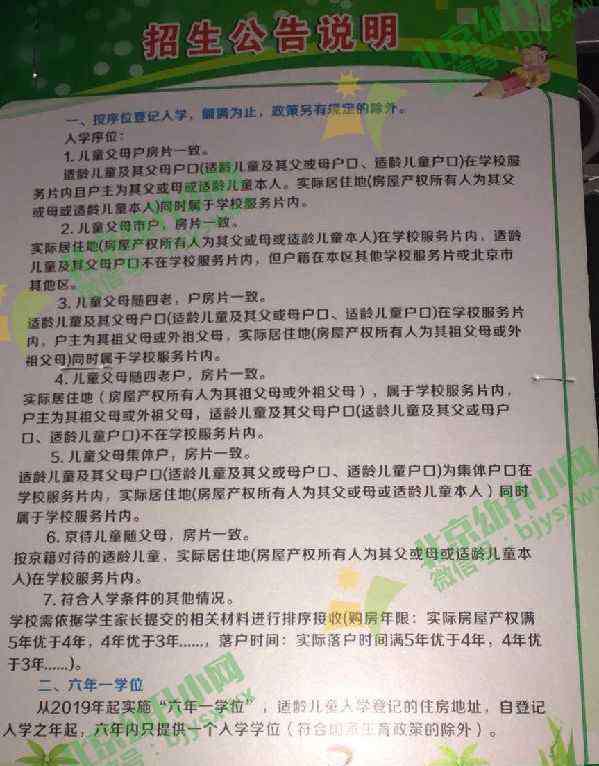 招生公告说明
一、按序位登记入学，额满为止，政策另有规定的除外。
入学序位：
1. 儿童父母户房片一致。
适龄儿童及其父母户口(适龄儿童及其父或母户口、适龄儿童户口)在学校服
务片内且户主为其父或母或适龄儿童本人。实际居住地(房屋产权所有人为其父
或母或适龄儿童本人)同时属于学校服务片内。
2. 儿童父母市户，房片一致。
实际居住地(房屋产权所有人为其父或母或适龄儿童本人)在学校服务片内，适龄
儿童及其父母户口不在学校服务片内，但户籍在本区其他学校服务片或北京市
其他区。
3. 儿童父母随四老，户房片一致。
适龄儿童及其父母户口(适龄儿童及其父或母户口、适龄儿童户口)在学校服务片
内，户主为其祖父母或外祖父母，实际居住地(房屋产权所有人为其祖父母或外
祖父母)同时属于学校服务片内。
4. 儿童父母随四老户，房片一致。
实际居住地（房屋产权所有人为其祖父母或外祖父母），属于学校服务片内，
户主为其祖父母或外祖父母，适龄儿童及其父母户口(适龄儿童及其父或母户
口、适龄儿童户口)不在学校服务片内。
5. 儿童父母集体户，房片一致。
适龄儿童及其父母户口(适龄儿童及其父或母户口、适龄儿童户口)为集体户口在
学校服务片内，实际居住地(房屋产权所有人为其父或母或适龄儿童本人）同时
属于学校服务片内。
6. 京待儿童随父母，房片一致。
按京籍对待的适龄儿童，实际居住地(房屋产权所有人为其父或母或适龄儿童本
人)在学校服务片内。
7. 符合入学条件的其他情况。
学校需依据学生家长提交的相关材料进行排序接收(购房年限：实际房屋产权满
5年优于4年，4年优于3年……，落户时间：实际落户时间满5年优于4年，4年优
于3年……)。
二、六年一学位
从2019年起实施“六年一学位”，适龄儿童入学登记的住房地址，自登记
入学之年起，六年内只提供一个入学学位（符合国家生育政策的除外）。
北京幼升小网
微信号：bjysxwx
北京幼升小网
微信号：bjysxwx